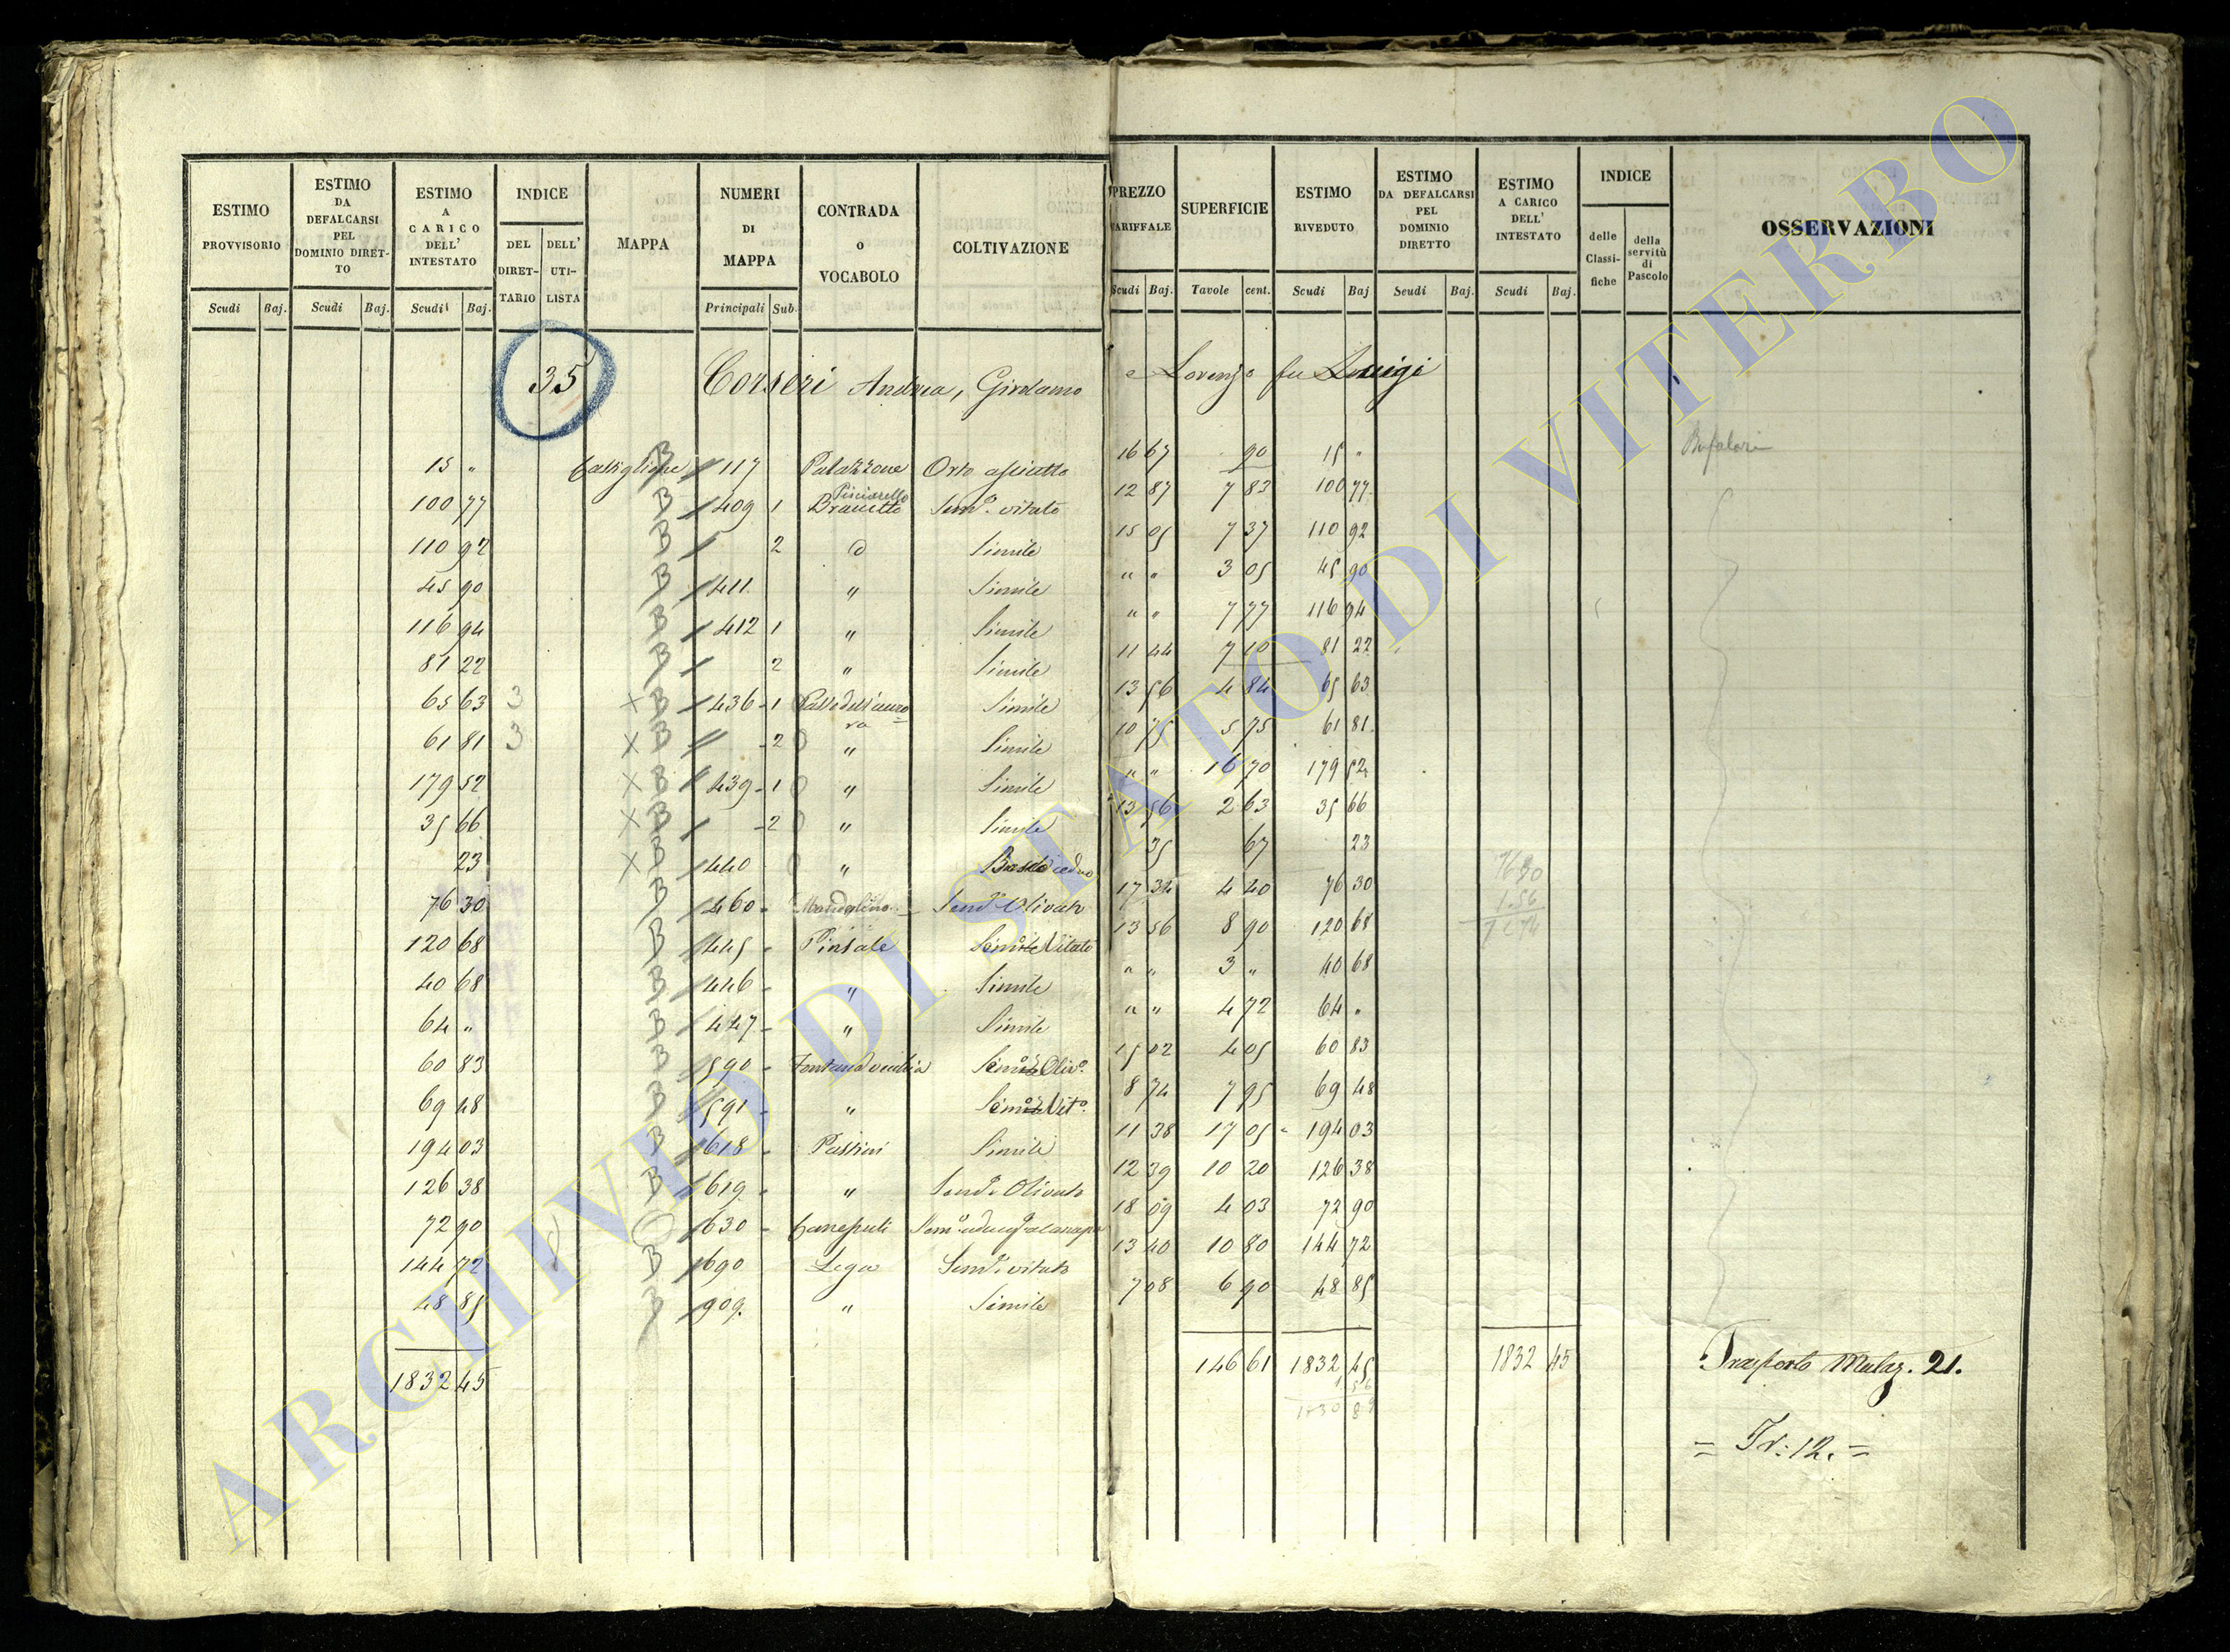 ESTIMO PROVVISORIO | ESTIMO DA DEFALCARSI PEL DOMINIO DIRETTO | ESTIMO A CARICO DELL' INTESTATO | INDICE DEL DIRETTARIO | DELL' UTILISTA | MAPPA | NUMERI DI MAPPA | CONTRADA O VOCABOLO | COLTIVAZIONE | PREZZO TARIFFALE | SUPERFICIE | ESTIMO RIVEDUTO | ESTIMO DA DEFALCARSI PEL DOMINIO DIRETTO | ESTIMO A CARICO DELL' INTESTATO | INDICE delle Classifiche | della servitù di Pascolo | OSSERVAZIONI
Scudi Baj. | Scudi Baj. | Scudi Baj. | Principali Sub. | Scudi Baj. | Tavole cent. | Scudi Baj | Scudi Baj. | Scudi Baj.
35 Corseri Andrea, Girolamo e Lorenzo fu Luigi
15 " Castiglione B 117 Palazzone Orto asciutto 16 67 90 15 " Bufalari
100 77 B 409 1 Pisciarello Braccetto Sem.o vitato 12 87 7 83 100 77
110 92 B 2 @ Simile 15 05 7 37 110 92
45 90 B 411 " Simile " " 3 05 45 90
116 94 B 412 1 " Simile " " 7 77 116 94
81 22 B 2 " Simile 11 44 7 10 81 22
65 63 3 X B 436 - 1 Simile 13 56 4 84 65 63
61 81 3 X B - 2 " Simile 10 75 5 75 61 81
179 52 X B 439 - 1 " Simile " " 16 70 179 52
35 66 X B - 2 " Simile 13 56 2 63 35 66
23 X B 440 " Bosco ceduo 35 67 23
76 30 B 460 - Sem.o Olivato 17 34 4 40 76 30 76 30
1.56
120 68 B 445 - Pinsale Sem.o Vitato 13 56 8 90 120 68
40 68 B 446 - " Simile " " 3 " 40 68
64 " B 447 - " Simile " " 4 72 64 "
60 83 B 590 - Fontana vecchia Sem.o Oliv.o 15 02 4 05 60 83
69 48 B 591 - " Sem.o Vit.o 8 74 7 95 69 48
194 03 B 618 - Pastini Simile 11 38 17 05 194 03
126 38 B 619 - " Sem.o Olivato 12 39 10 20 126 38
72 90 630 - Canepuli 18 09 4 03 72 90
144 72 B 690 Lega Sem.o vitato 13 40 10 80 144 72
48 85 B 909. " Simile 7 08 6 90 48 85
1832 45 146 61 1832 45 1832 45 Trasporto Mulaz. 21.
1.56
1830 89
= Tr: 12. =
ARCHIVIO DI STATO DI VITERBO